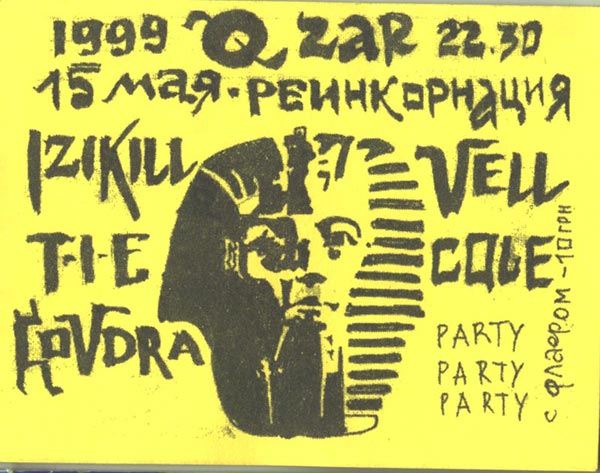 1999 Q ZAR 22.30
15 МАЯ · РЕИНКОРНАЦИЯ
IZIKILL
T-I-E
VELL
PARTY
PARTY
PARTY
с флаером -10 грн